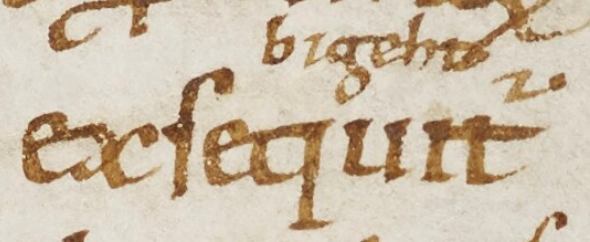 bigeht
exsequit᷑